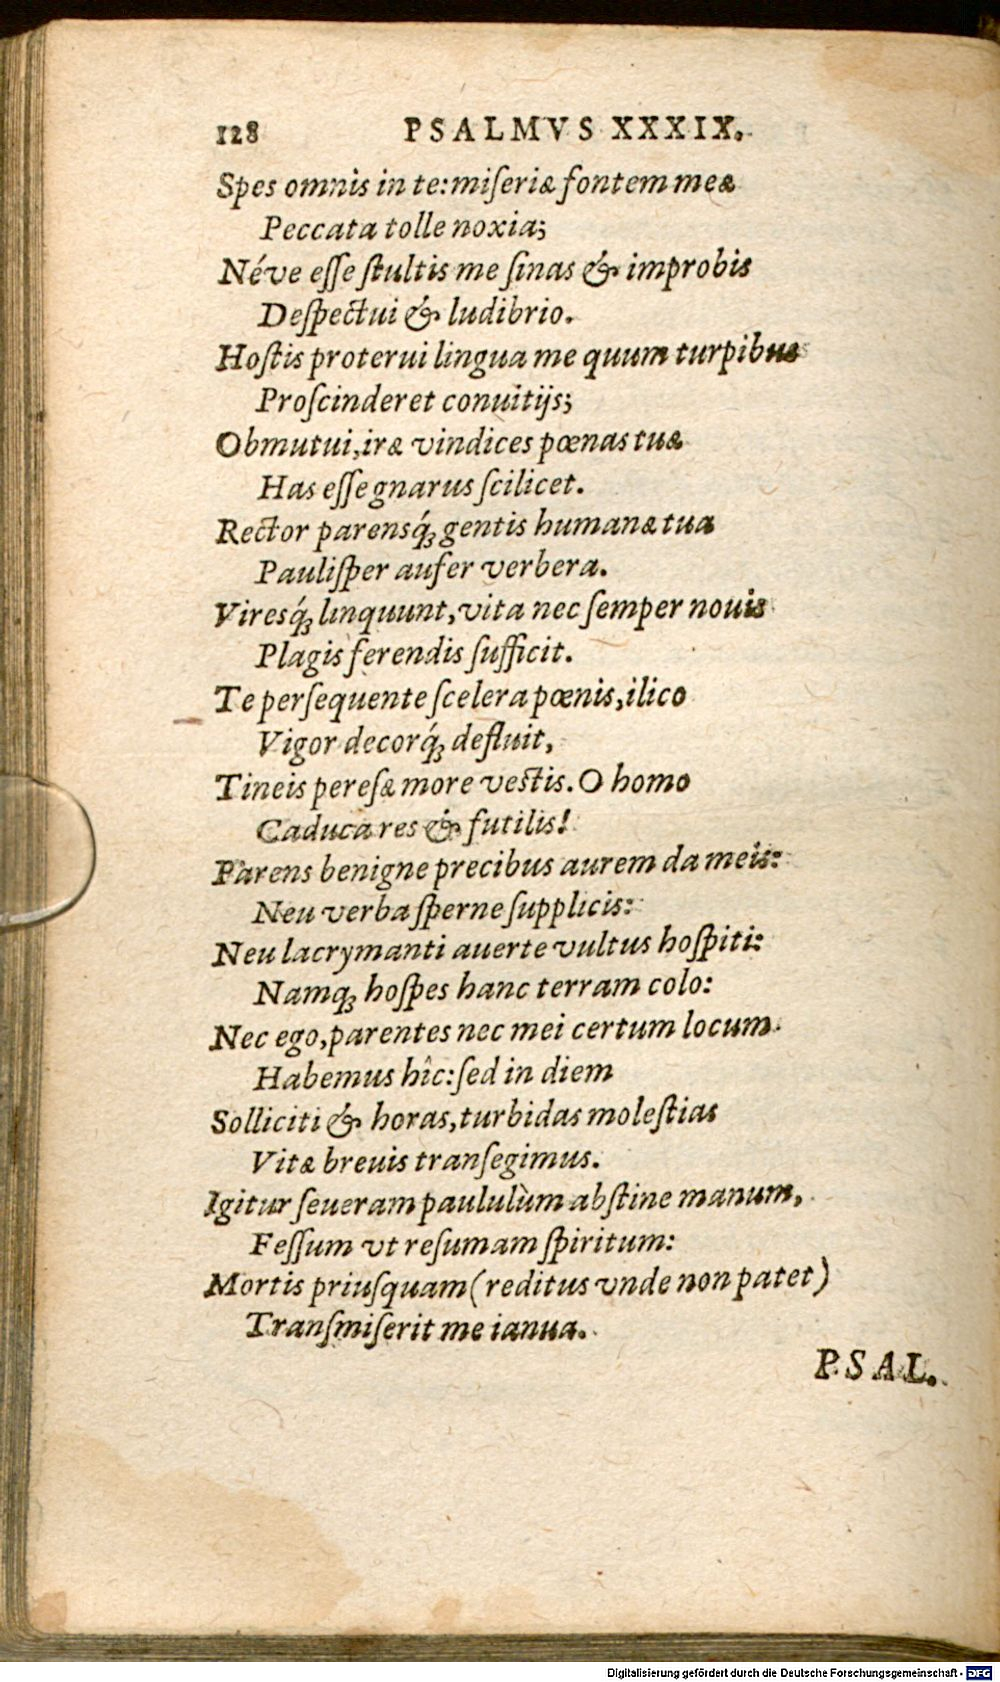 128 PSALMVS XXXIX.
Spes omnis in te: miſeriæ fontem meæ
Peccata tolle noxia;
Néve eſſe ſtultis me ſinas & improbis
Deſpectui & ludibrio.
Hoſtis proterui lingua me quum turpibus
Proſcinderet conuitijs;
Obmutui, iræ vindices pœnas tuæ
Has eſſe gnarus ſcilicet.
Rector parensq́; gentis humanæ tua
Pauliſper aufer verbera.
Viresq́; linquunt, vita nec ſemper nouis
Plagis ferendis ſufficit.
Te perſequente ſcelera pœnis, ilico
Vigor decorq́; defluit,
Tineis pereſæ more veſtis. O homo
Caduca res & futilis!
Parens benigne precibus aurem da meis:
Neu verba ſperne ſupplicis:
Neu lacrymanti auerte vultus hoſpiti:
Namq; hoſpes hanc terram colo:
Nec ego, parentes nec mei certum locum
Habemus hîc: ſed in diem
Solliciti & horas, turbidas moleſtias
Vitæ breuis tranſegimus.
Igitur ſeueram paululùm abſtine manum,
Feſſum vt reſumam ſpiritum:
Mortis priuſquam (reditus vnde non patet)
Tranſmiſerit me ianua.
PSAL.
Digitalisierung gefördert durch die Deutsche Forschungsgemeinschaft - DFG